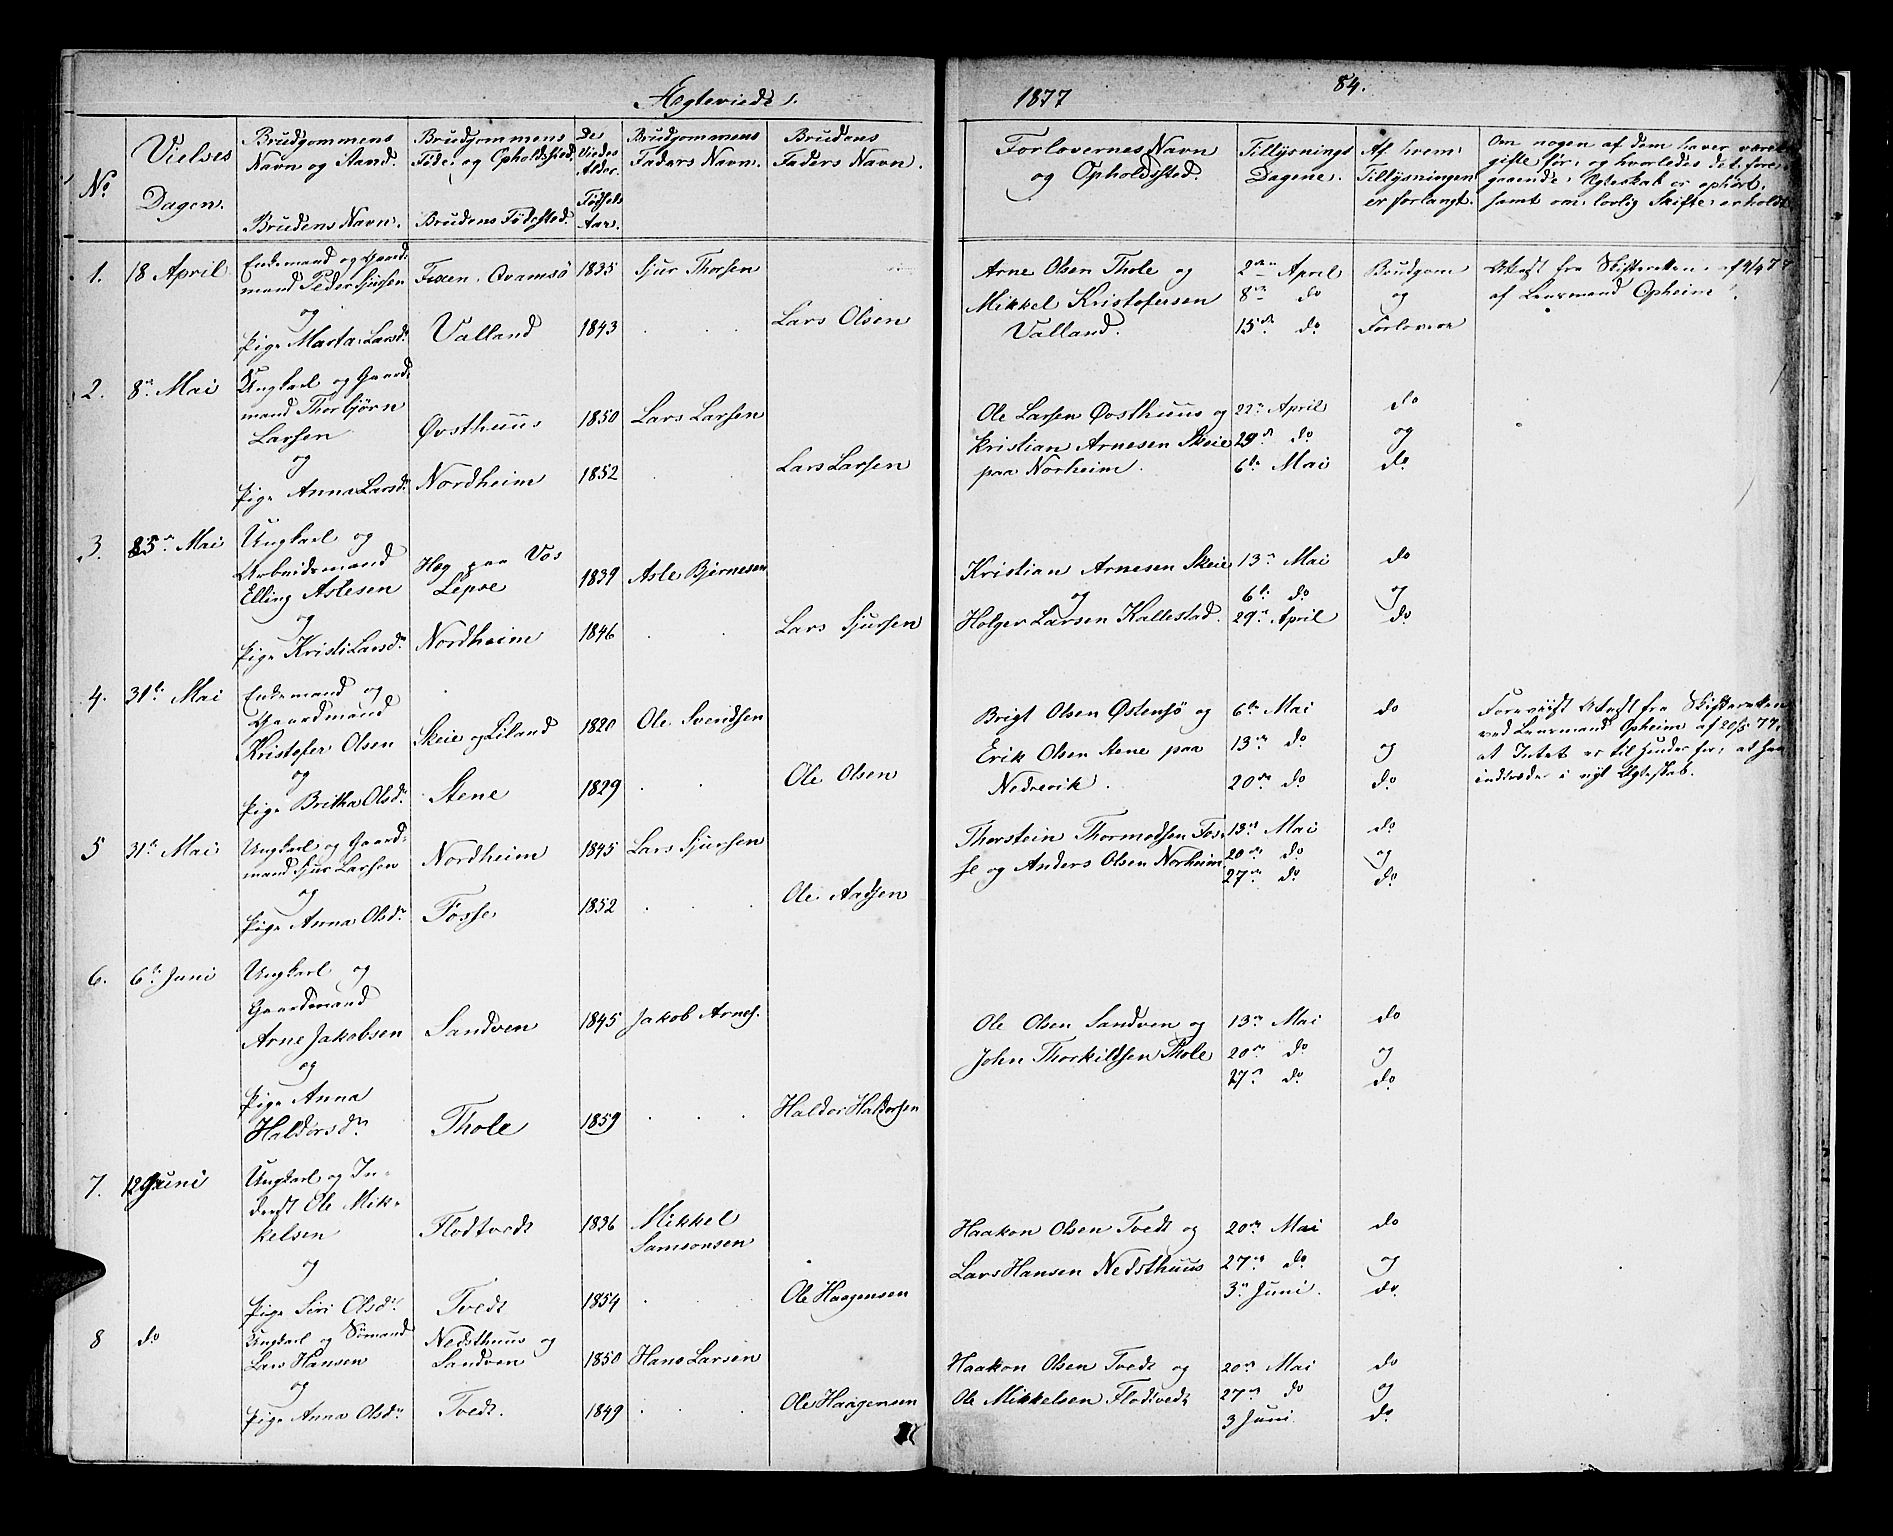 Ægteviede. 1877 84.
No
Vielses Dagen.
Brudgommens Navn og Stand.
Brudens Navn.
Brudgommens Føde og Opholdssted.
Brudens Fødested.
De Viedes Alder.
Fødsels Aar.
Brudgommens Faders Navn.
Brudens Faders Navn.
Forlovernes Navn og Opholdssted.
Tillysnings Dagene.
Af hvem Tillysningen er forlangt.
Om nogen af dem haver været
gifte før, og hvorledes det fore-
gaaende Ægteskab er ophørt,
samt om lovlig Skifte erholdt
1. 18 April
Enkemand og Gaard-
mand Peder Sjursen Fixen, Qvamsø 1835 Sjur Thorsen
og
Pige Marta Larsdr Valland 1843 . . Lars Olsen
Arne Olsen Thole og
Mikkel Kristofersen
Valland.
2den April
8de do
15de do
Brudgom
og
Forlovere
Attest fra Skifteretten af 4/4 77
af Lensmand Opheim
2. 8de Mai
Ungkarl og Gaard-
mand Thorbjørn
Larsen Øvsthuus 1850 Lars Larsen
og
Pige Anna Larsdr Nordheim 1852 . Lars Larsen
Ole Larsen Øvsthuus og
Kristian Arnesen Skeie
paa Norheim.
22de April
29de do
6te Mai
do
og
do
3. 25de Mai
Ungkarl og
Arbeidsmand
Elling Aslesen
Hæg paa Vos
Lepsø 1839 Asle Bjørnesen
og
Pige Kristi Larsdr Nordheim 1846 . . Lars Sjursen
Kristian Arnesen Skeie
og
Holger Larsen Kallestad.
13de Mai
6te do
29de April
do
og
do
4. 31te Mai
Enkemand og
Gaardmand
Kristofer Olsen Skeie og Liland 1820 Ole Svendsen
og
Pige Britha Olsdr Stene 1829 . . Ole Olsen
Brigt Olsen Østensø og
Erik Olsen Stene paa
Nedrevik.
6te Mai
13de do
20de do
do
og
do
Foreviist Attest fra Skifteretten
ved Lensmand Opheim af 20/5 77,
at Intet er til Hinder for, at han
indtræder i nyt Ægteskab.
5 31te Mai
Ungkarl og Gaard-
mand Sjur Larsen Nordheim 1845 Lars Sjursen
og
Pige Anna Olsdr Fosse 1852 . . . Ole Aadsen
Thorstein Thormodsen Fos-
se og Anders Olsen Norheim
13de Mai
20de do
27de do
do
og
do
6. 6te Juni
Ungkarl og
Gaardmand
Arne Jakobsen Sandven 1845 Jakob Arnes.
og
Pige Anna
Haldorsdr Thole 1859 . . Haldor Haldorsen
Ole Olsen Sandven og
John Thorkildsen Thole
13de Mai
20de do
27de do
do
og
do
7. 12 Juni
Ungkarl og In-
derst Ole Mik-
kelsen Flodtvedt 1836 Mikkel
Samsonsen
og
Pige Siri Olsdr Tvedt 1854 . . . Ole Haagensen
Haakon Olsen Tvedt og
Lars Hansen Nedsthuus
20de Mai
27de do
3die Juni.
do
og
do
8 do
Ungkarl og Sømand
Lars Hansen
Nedsthuus og
Sandven 1850 Hans Larsen
og
Pige Anna Olsdr Tvedt. 1849 . . . Ole Haagensen
Haakon Olsen Tvedt og
Ole Mikkelsen Flodtvedt
20de Mai
27de do
3 Juni
do
og
do